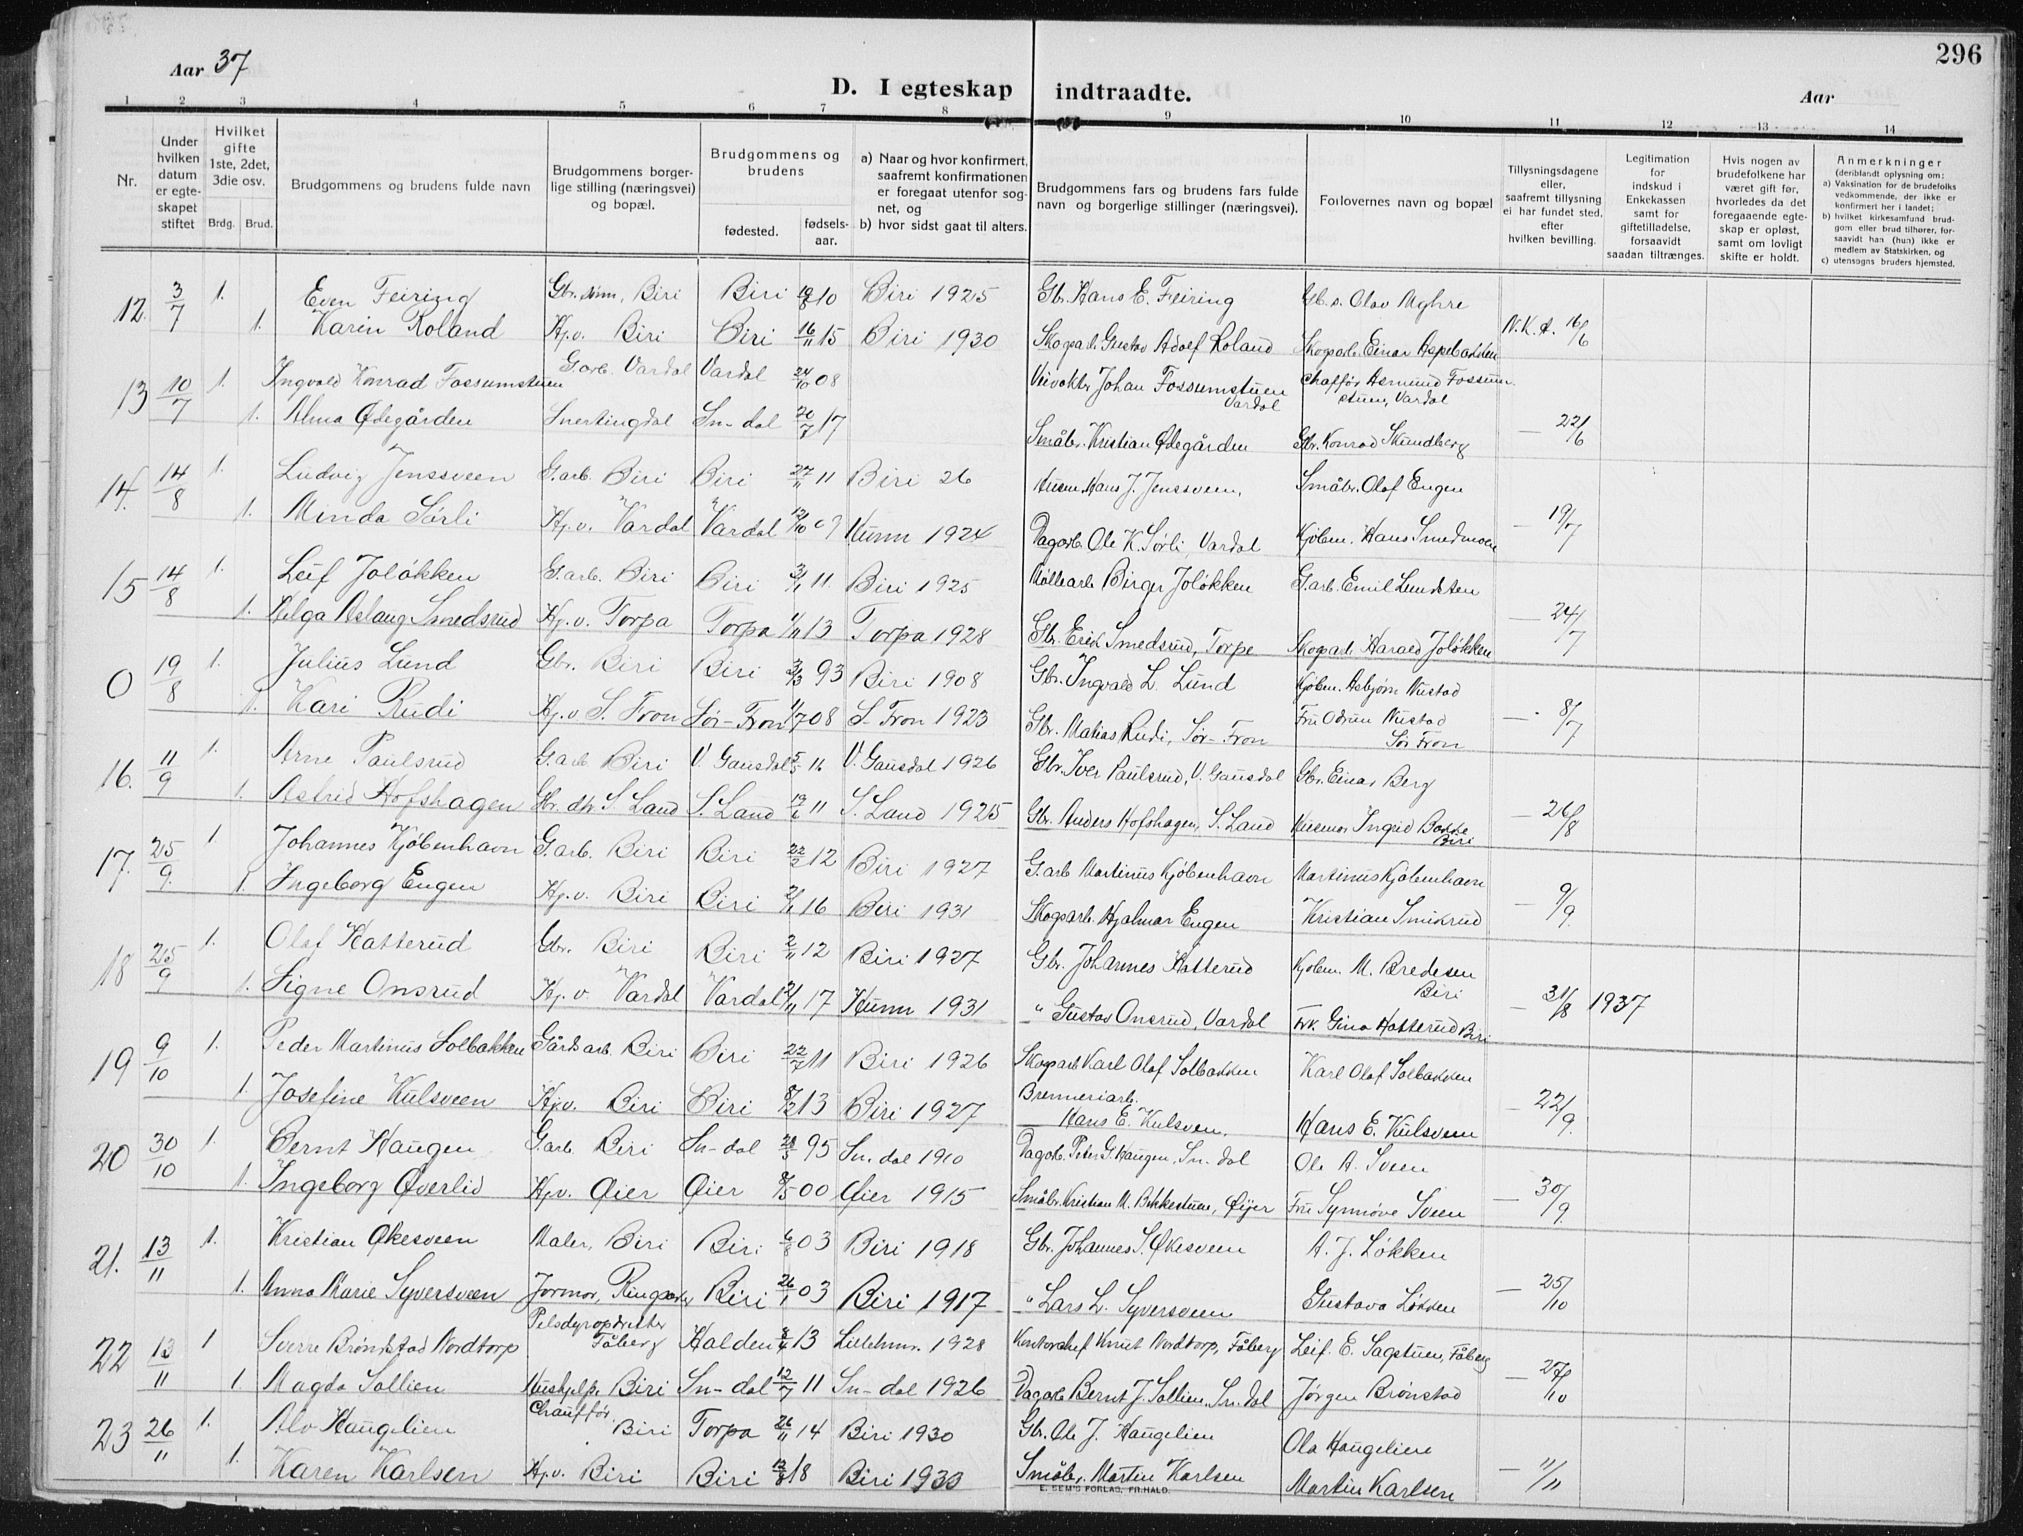 296
Aar 37
D. I egteskap indtraadte.
Aar
1 2 3 4 5 6 7 8 9 10 11 12 13 14
Nr.
Under hvilken datum er egteskapet stiftet
Hvilket gifte 1ste, 2det, 3die osv.
Brdg. Brud.
Brudgommens og brudens fulde navn
Brudgommens borgerlige stilling (næringsvei) og bopæl.
Brudgommens og brudens
fødested.
fødselsaar.
a) Naar og hvor konfirmert, saafremt konfirmationen er foregaat utenfor sognet, og
b) hvor sidst gaat til alters.
Brudgommens fars og brudens fars fulde navn og borgerlige stillinger (næringsvei).
Forlovernes navn og bopæl
Tillysningsdagene eller, saafremt tillysning ei har fundet sted, efter hvilken bevilling.
Legitimation for indskud i Enkekassen samt for giftetilladelse, forsaavidt saadan tiltrænges.
Hvis nogen av brudefolkene har været gift før, hvorledes da det foregaaende egteskap er opløst, samt om lovligt skifte er holdt.
Anmerkninger (deriblandt oplysning om:
a) Vaksination for de brudefolks vedkommende, der ikke er konfirmert her i landet;
b) hvilket kirkesamfund brudgom eller brud tilhører, forsaavidt han (hun) ikke er medlem av Statskirken, og
c) utensogns bruders hjemsted.
12. 3/7 1. Even Feiring Gbr. sønn, Biri Biri 10 Biri 1925 Gbr. Hans E. Feiring Gb.s. Olav
1. Karin Roland Hj.v. Biri Biri 16/11 15 Biri 1930 Skogarb. Gustav Adolf Roland Skogarb. Einar Aspebakken N.K.A. 16/6
13 10/7 1. Ingvald Konrad Fossumstuen Garb. Vardal Vardal 24/10 08 Johan Fossumstuen Vardal Chaffør Asmund Fossumstuen, Vardal
1. Alma Ødegården Snertingdal Sn-dal 20/7 17 Småbr. Kristian Ødegården Gbr. Konrad Skundberg — 22/6
14. 14/8 1. Ludvig Jenssveen G.arb. Biri Biri 27/11 11 Biri 26 Husm. Hans J. Jenssveen, Småbr. Olaf Engen
1. Minda Sørli Hj.v. Vardal Vardal 12/10 09 Kunn 1924 Dagarb. Ole K. Sørli, Vardal Kjøbm. Hans Smedmoen — 19/7
15 14/8 1. Leif Joløkken G.arb. Biri Biri 3/1 11 Biri 1925 Møllearb Birger Joløkken G.arb. Emil Lundsten
1. Helga Aslaug Smedsrud Hj.v. Torpa Torpa 13 Torpa 1928 Gbr. Erik Smedsrud, Torpa Skogarb. Harald Joløkken — 24/7
0 19/8 1. Julius Lund Gbr. Biri Biri 3/3 93 Biri 1908 Gbr. Ingvald L. Lund Kjøbm. Asbjørn Nustad
1. Kari Rudi Hj.v S. Fron Sør-Fron 1/7 08 S. Fron 1923 Gbr. Matias Rudi, Sør-Fron Fru Odrun Nustad Sør Fron — 8/7
16. 11/9 1. Arne Paulsrud G.arb Biri V. Gausdal 5/5 11 V. Gausdal 1926 Gbr. Iver Paulsrud, V. Gausdal Gbr. Einar Berg
1. Astrid Hofshagen Gbr. dtr. S. Land S. Land 19/6 11 S. Land 1925 Gbr. Anders Hofshagen, S. Land Husmor Ingrid Bakke Biri — 26/8
17. 25/9. 1 Johannes Kjøbenhavn G.arb. Biri Biri 22/2 12 Biri 1927 G.arb Martinus Kjøbenhavn Martinus Kjøbenhavn
1. Ingeborg Engen Hj.v. Biri Biri 16 Biri 1931 Skogarb. Hjalmar Engen Kristian Smikrud — 9/9.
18 25/9 1. Olaf Hatterud Gbr. Biri Biri 2/11 12 Biri 1927 Gbr. Johannes Hatterud Kjøbm. M. Bredesen Biri
1. Signe Onsrud Hj.v Vardal Vardal 2/11 17 Kunn 1931 " Gustav Onsrud, Vardal Frk. Gina Hatterud Biri — 31/8 1937
19 9/10 1. Peder Martinus Solbakken Gårdsarb. Biri Biri 22/7 11 Biri 1926 Skogarb Karl Olaf Solbakken Karl Olaf Solbakken
1. Josefine Kulsveen Hj.v. Biri Biri 8/2 13 Biri 1927 Brenneriarb. Hans E. Kulsveen. Hans E. Kulsveen — 22/9.
20 30/10 1. Bernt Haugen G.arb. Biri Sn-dal 95 Sn.dal 1910 Dagarb. Peter G. Haugen, Sn.dal Ole A. Sveen
1. Ingeborg Øverlid Hj.v. Øier Øier 8/5 00 Øier 1915 Småbr. Kristian M. Bekkestuen, Øijer Fru Synnøve Sveen — 30/9.
21. 13/11 1. Kristian Økesveen Maler, Biri Biri 6/8 03 Biri 1918 Gbr. Johannes S. Økesveen A. J. Løkken
1. Anna Marie Syversveen Jormor, Ringsaker Biri 26/1 03 Biri 1917 " Lars L. Syversveen Gustava Løkken — 25/10
22 13/11 1 Sverre Brønstad Nordtorp Pelsdyropdretter Fåberg Halden 13 Lillehmr. 1928 Kontorchef Knut Nordtorp, Fåberg Leif. E. Sagstuen, Fåberg
1. Magda Sollien Hushjelp. Biri Sn-dal 12/7 11 Sn-dal 1926 Dagarb Bernt J. Sollien, Sn.dal Jørgen Brønstad — 27/10
23 26/11 1. Alv Haugelien Chauffør. Biri Torpa 26/11 14 Biri 1930 Gbr. Ole J. Haugelien Ola Haugelien
1. Karen Karlsen Hj.v. Biri Biri 12/8 18 Biri 1933 Småbr. Martin Karlsen Martin Karlsen — 11/11
E. SEM'S FORLAG, FR.HALD.